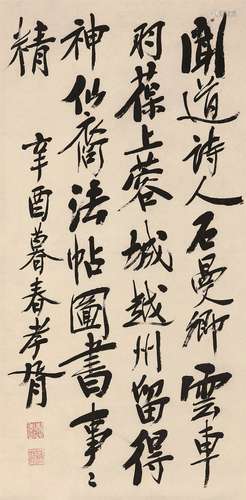 聞道詩人石曼卿雲車
羽葆上蓉城越州留得
神仙裔法帖圖書事〻
精
辛酉暮春孝胥